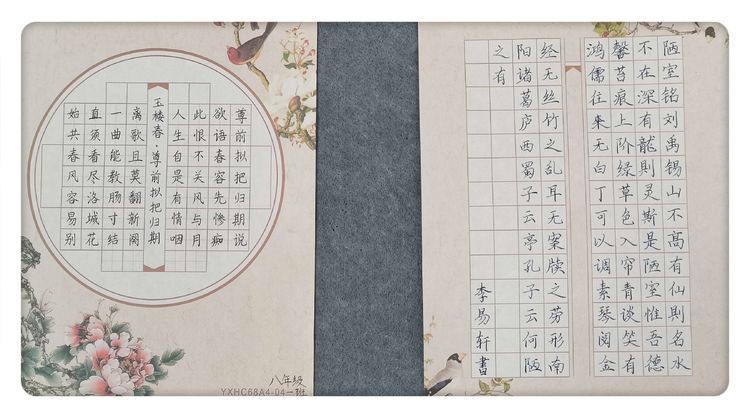 尊前拟把归期说
欲语春容先惨痴
此恨不关风与月
人生自是有情咽
玉楼春·尊前拟把归期
离歌且莫翻新阕
一曲能教肠寸结
直须看尽洛城花
始共春风容易别
八年级
YXHC68A4-04一班
陋室铭刘禹锡山不高有仙則名水
不在深有龍則灵斯是陋室惟吾德
馨苔痕上阶绿草色入帘青谈笑有
鸿儒往来无白丁可以调素琴阅金
经无丝竹之乱耳无案牍之劳形南
阳诸葛庐西蜀子云亭孔子云何陋
之有
李易轩書